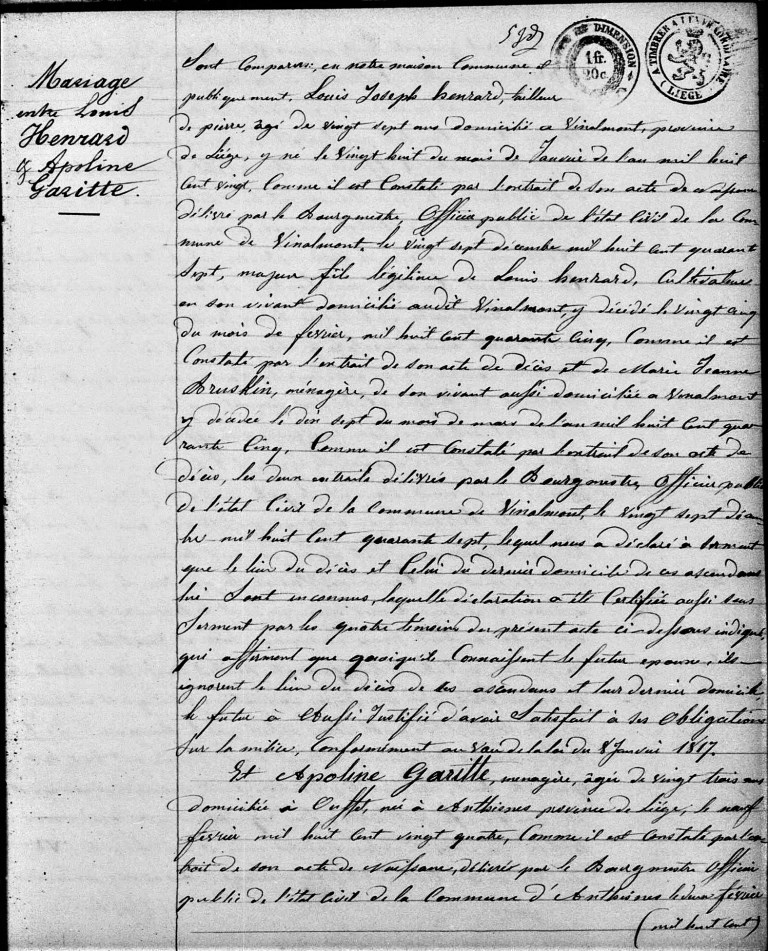 DE DIMENSION
1 fr.
20 c.
A TIMBRER A L'EXTRAORDINAIRE
( LIEGE )
Mariage
entre Louis
Henrard
& Apoline
Garitte.
Sont Comparus, en notre maison Commune et
publiquement, Louis Joseph henrard, tailleur
de pierre, agé de vingt sept ans domicilié a Vinalmont, province
de Liége, y né le Vingt huit du mois de Janvier de l'an mil huit
Cent vingt, Comme il est Constaté par l'extrait de son acte de
délivré par le Bourgmestre, Officier public de l'état Civil de la Com-
mune de Vinalmont, le vingt sept décembre mil huit Cent quarant
Sept, majeur fils légitime de Louis henrard, Cultivateur
en son vivant domicilié audit Vinalmont, y décédé le vingt Cinq
du mois de fevrier, mil huit Cent quarante Cinq, Comme il est
Constaté par l'extrait de son acte de décès et de Marie Jeanne
ménagère, de son vivant aussi domiciliée a Vinalmont
y décédée le dix sept du mois de mars de l'an mil huit Cent qua-
rante Cinq, Comme il est Constaté par l'extrait de son acte de
décès, les deux extraits délivrés par le Bourgmestre, Officier public
de l'état Civil de la Commune de Vinalmont, le vingt sept décem-
bre mil huit Cent quarante sept, lequel nous a déclaré à serment
que le lieu du décès et Celui du dernier domicile de ses ascendans
lui Sont inconnus, laquelle déclaration a été Certifiée aussi sous
Serment par les quatre témoins du présent acte ci-dessous indiqués
qui affirment que quoiqu'ils Connaissent le futur epoux, ils
ignorent le lieu du décès de ses ascendans et leur dernier domicile,
le futur à Aussi Justifié d'avoir Satisfait à ses Obligations
Sur la milice, Conformément au vœu de la loi du 8 Janvier 1817.
Et Apoline Garitte, menagère, agée de vingt trois ans
domiciliée à Ouffet, née à Anthisnes province de Liége, le neuf
fevrier mil huit Cent vingt quatre, Comme il est Constaté par l'ex-
trait de son acte de Naissance, délivré par le Bourgmestre Officier
public de l'état Civil de la Commune d'Anthisnes le deux fevrier
( mil huit Cent )